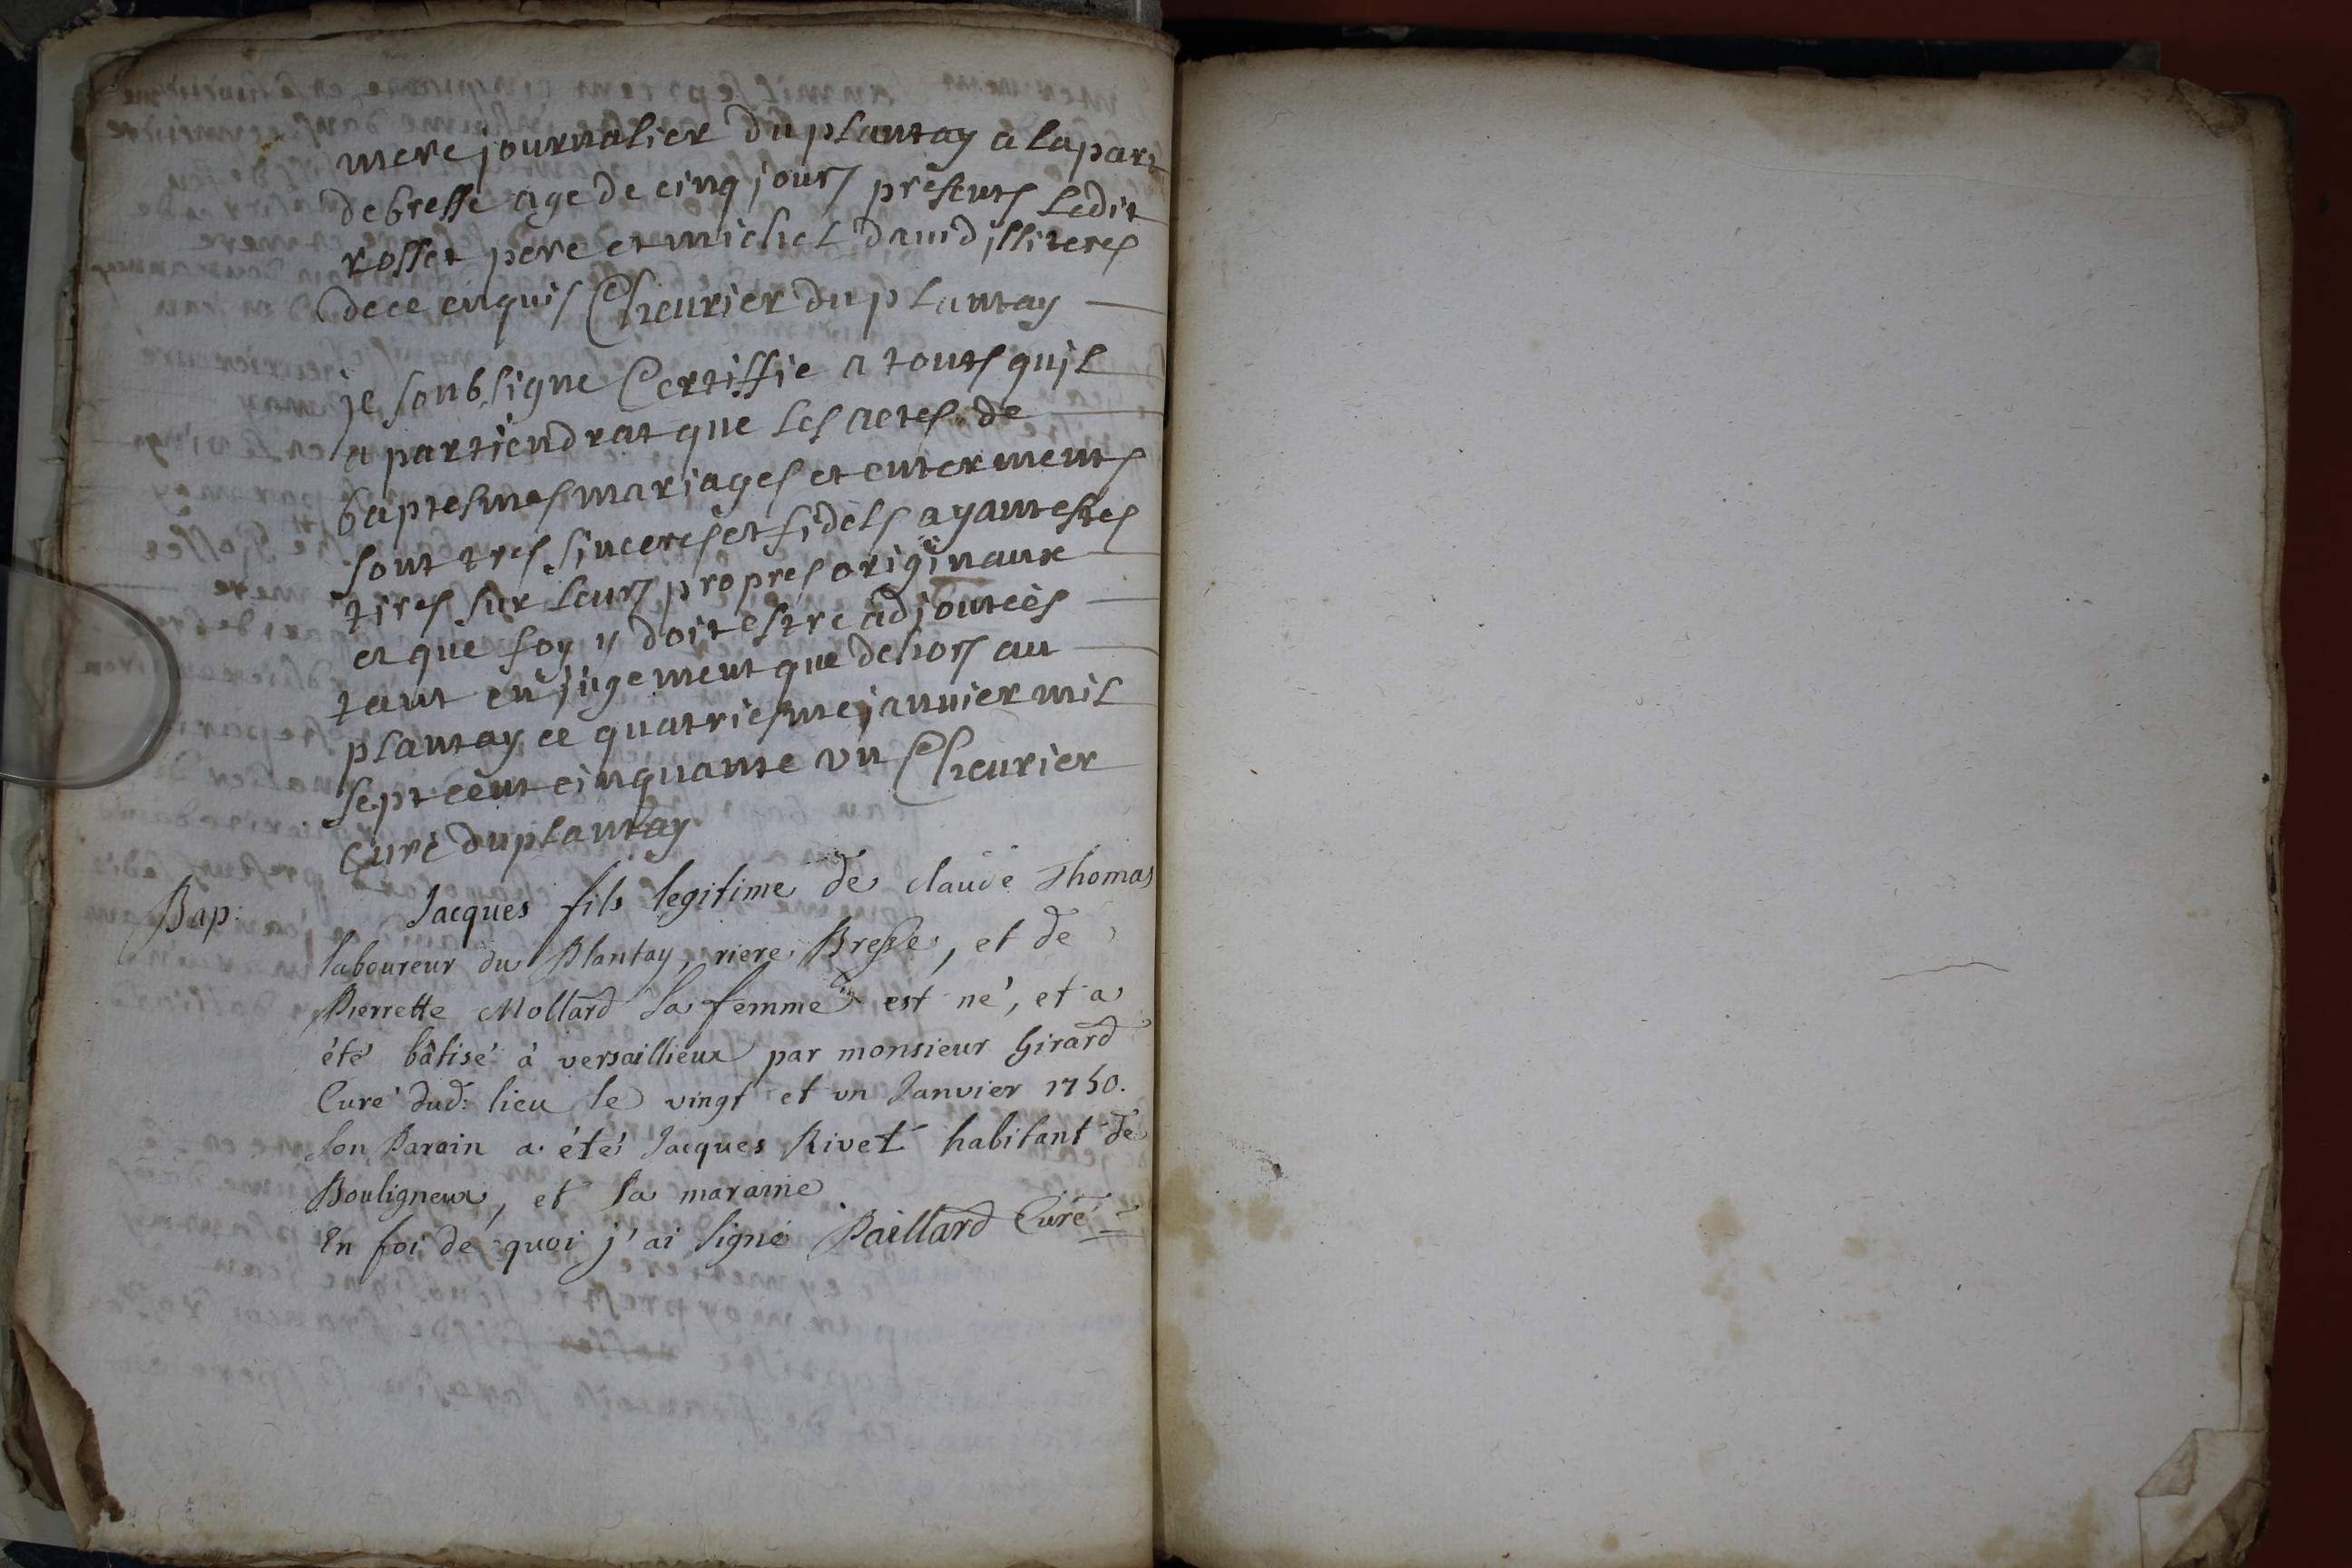 mere journalier du plantay a la part
de bresse age de cinq jours présents ledit
rosset père et michel david illiteres
de ce enquis Cheurier du plantay
je soubsigne Certiffie a touts quil
apartiendrat que les actes de
baptesmes mariages et enterments
sont tres sinceres et fidels ayant estes
tires sur leurs propres originaux
et que foy y doit estre adjoutées
tant en jugement que dehors au
plantay ce quatriesme januier mil
sept cent cinquante vn Cheurier
Curé du plantay
Bap: Jacques fils legitime de claude Thomas
laboureur du Plantay, riere Bresse, et de
Pierrette Mollard sa femme est né, et a
été bâtisé à versaillieux par monsieur Girard
Curé dud: lieu le vingt et vn Janvier 1750.
son Parain a été Jacques Rivet habitant de
Bouligneux, et la maraine
En foi de quoi j'ai signé Paillard Curé